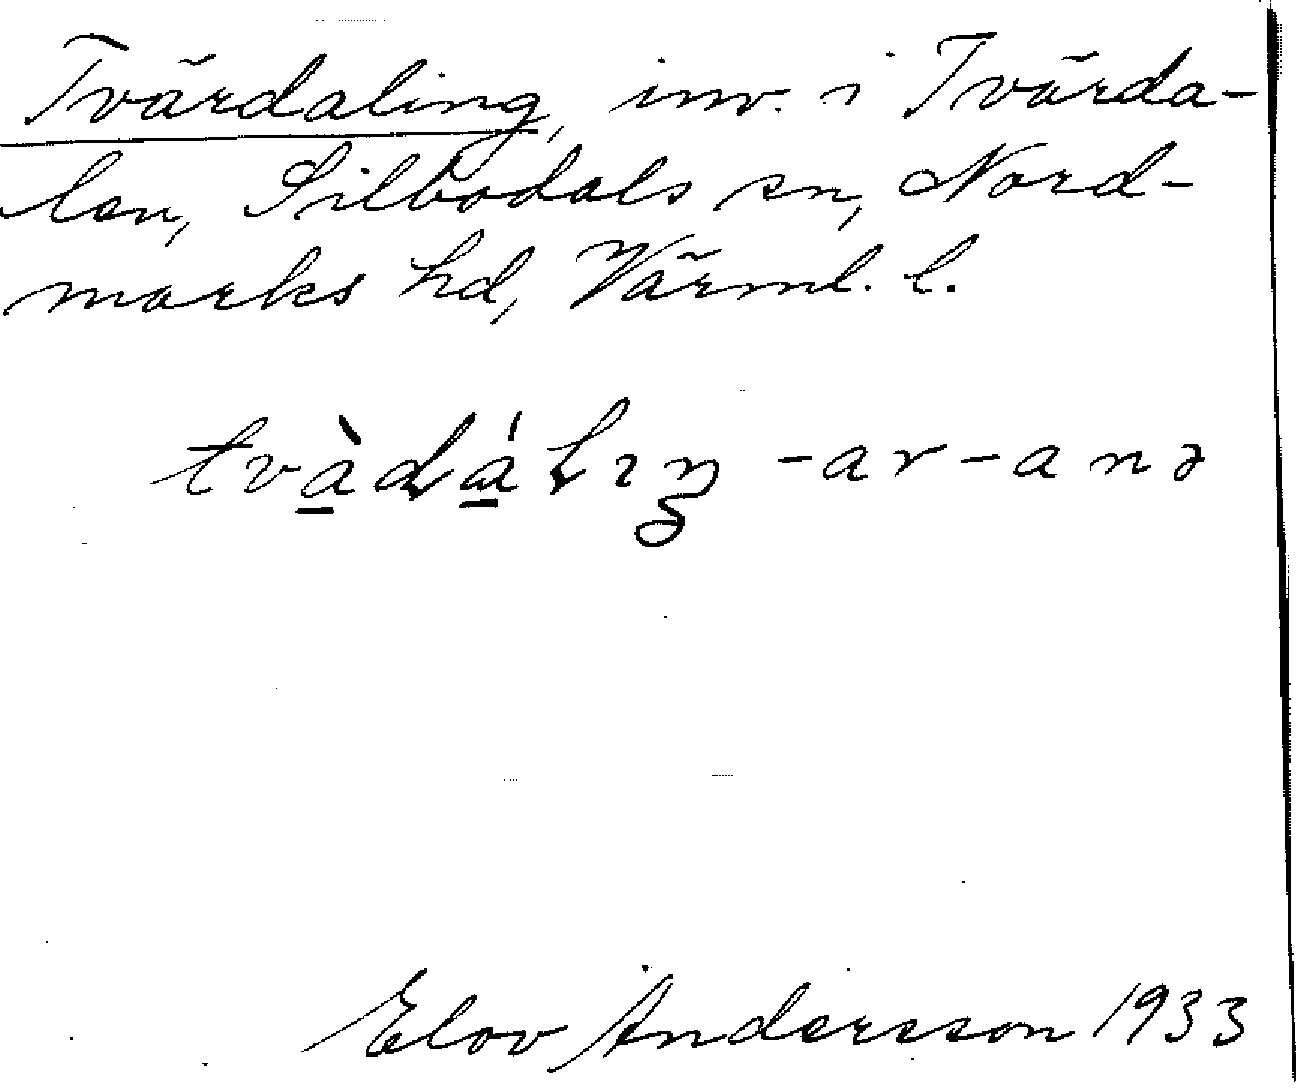 Tvärdaling, inv. i Tvärda-
len, Silbodals sn, Nord-
marks hd, Värml. l.
-ar -anə
Elov Andersson 1933